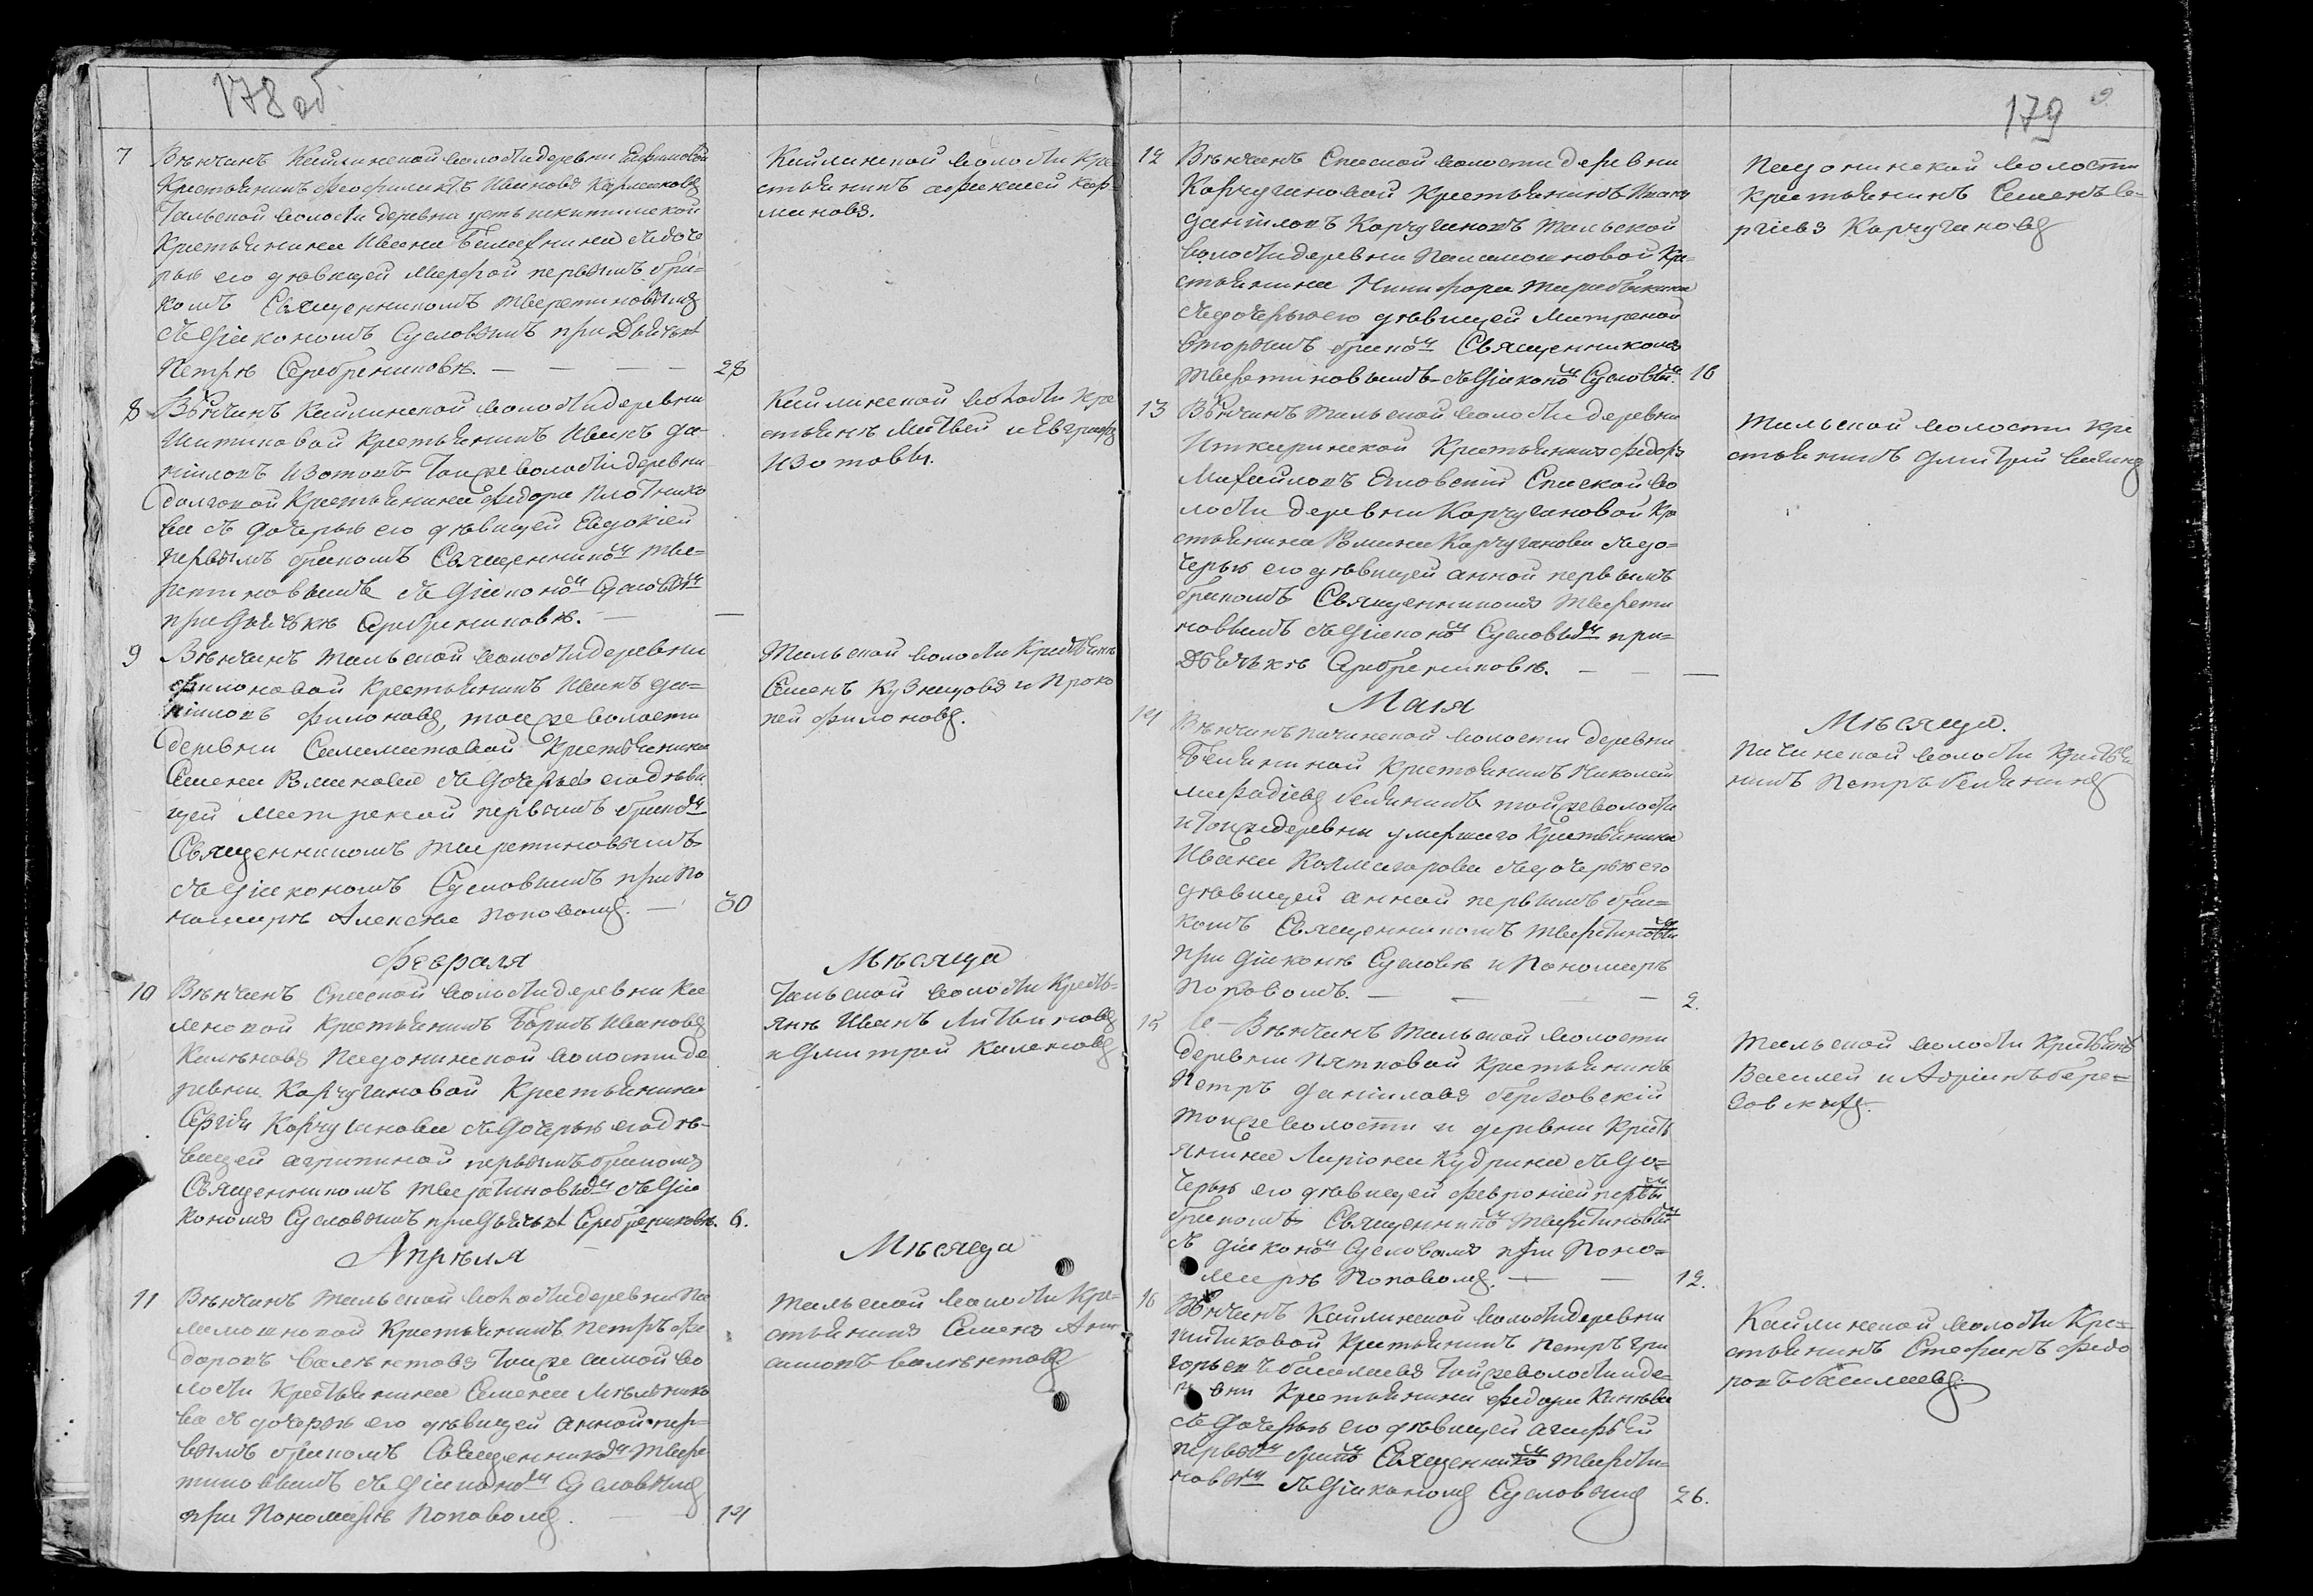 178 об
7
Венчанъ Кайлинской волости деревни Евтиновой
Крестьянинъ Феофилактъ Ивановъ Карманковъ
Тальской волости деревни усть искитимской
Крестьянина Ивана съ доче
рью его девицей Марфой первымъ бра-
комъ Священникомъ Тверетиновымъ
съ Діакономъ Сусловымъ при Дьячке
Петре Серебрениковѣ. 28
Кайлинской волости Кре-
стьянинъ Афанасей Кар-
манковъ.
8
Вѣнчанъ Кайлинской волости деревни
Шитиковой Крестьянинъ Иванъ Да-
ниловъ Изотовъ Тоиже волости деревни
Долговой Крестьянина Федора Плотнико
ва съ дочерью его девицей Евдокіей
первымъ бракомъ Священникомъ Тве-
ретиновымъ съ Діакономъ Сусловымъ
при Дьячкѣ Серебрениковѣ. —
Кайлинской волости Кре
стьянъ Матвей и Евграфъ
Изотовы.
9
Вѣнчанъ Тальской волости деревни
Филоновой Крестьянинъ Иванъ Да-
ниловъ Филоновъ, тоиже волости
деревни Саламатовой Крестьянина
Семена Романова съ дочерью его деви
цей Матреной первымъ бракомъ
Священникомъ Тверетиновымъ
съ Діакономъ Сусловымъ при По
номарѣ Алексѣе Поповомъ. — 30
Тальской волости Крестьянъ
Семенъ Кузнецовъ и Проко
пей Филоновъ.
Февраля Мѣсяца
10
Вѣнчанъ Спаской волости деревни Ка
леновой Крестьянинъ Борисъ Ивановъ
Каленовъ Падонинской волости де
ревни Корчугановой Крестьянина
Сергія Корчуганова съ дочерью его дѣ-
вицей Агрипиной первымъ бракомъ
Священникомъ Тверетиновымъ съ Діа
кономъ Сусловымъ при Дьячкѣ Серебрениковѣ. 6.
Тальской волости Кресть-
янъ Иванъ Литвиновъ
и Дмитрей Каленовъ
Апрѣля Мѣсяца
11
Вѣнчанъ Тальской волости деревни Па
ламошновой Крестьянинъ Петръ Фе
доровъ тоиже самой во
лости Крестьянина Семена Мѣльнико
ва съ дочерью его девицей Анной пер-
вымъ бракомъ Священникомъ Твере
тиновымъ съ Діакономъ Сусловымъ
при Пономарѣ Поповомъ. 14
Тальской волости Кре-
стьянинъ Семенъ
179
12
Вѣнчанъ Спаской волости деревни
Корчугановой Крестьянинъ
Даниловъ Корчугановъ Тальской
волости деревни Паламошновой Кре-
стьянина Никифора
съ дочерью его девицей Матреной
вторымъ бракомъ Священникомъ
Тверетиновымъ съ Діакономъ Сусловымъ. 16
Падонинской волости
Крестьянинъ Семенъ Се-
ргіевъ Корчугановъ
13
Вѣнчанъ Тальской волости деревни
Иткаринской Крестьянинъ Федоръ
Михайловъ Еловскій Спаской во
лости деревни Корчугановой Кре
стьянина Романа Корчуганова съ до-
черью его девицей Анной первымъ
бракомъ Священникомъ Тверети
новымъ съ Діакономъ Сусловымъ при-
Дьячькѣ Серебрениковѣ. — —
Тальской волости Кре
стьянинъ Дмитрей
Маія Мѣсяца.
14
Вѣнчанъ Пачинской волости деревни
Беляниной Крестьянинъ Николай
Белянинъ тойже волости
и Тоиже деревни умершаго Крестьянина
Ивана Колмагорова съ дочерью его
девицей Анной первымъ бра-
комъ Священникомъ Тверетиновымъ
при Діаконѣ Сусловѣ и Пономарѣ
Поповомъ. — 2.
Пачинской волости Крестья
нинъ Петръ Белянинъ
15
Вѣнчанъ Тальской волости
деревни Пятковой Крестьянинъ
Петръ Даниловъ Березовскій
Тоиже волости и деревни Кресть
янина Ларіона Кудрина съ до-
черью его девицей Февроніей первымъ
бракомъ Священникомъ Тверетиновымъ
съ Діакономъ Сусловымъ при Поно-
марѣ Поповомъ. — 12.
Тальской волости Крестьянъ
Василей и Адріанъ Бере-
зовскихъ.
16
Вѣнчанъ Кайлинской волости деревни
Шитиковой Крестьянинъ Петръ Гри
горьевъ Басалаевъ Тойже волости и де-
ревни Крестьянина Федора
съ дочерью его девицей Агафьей
первымъ бракомъ Священникомъ Тверети-
новымъ съ Діакономъ Сусловымъ 26.
Кайлинской волости Кре-
стьянинъ Стефанъ Федо
ровъ Басалаевъ.